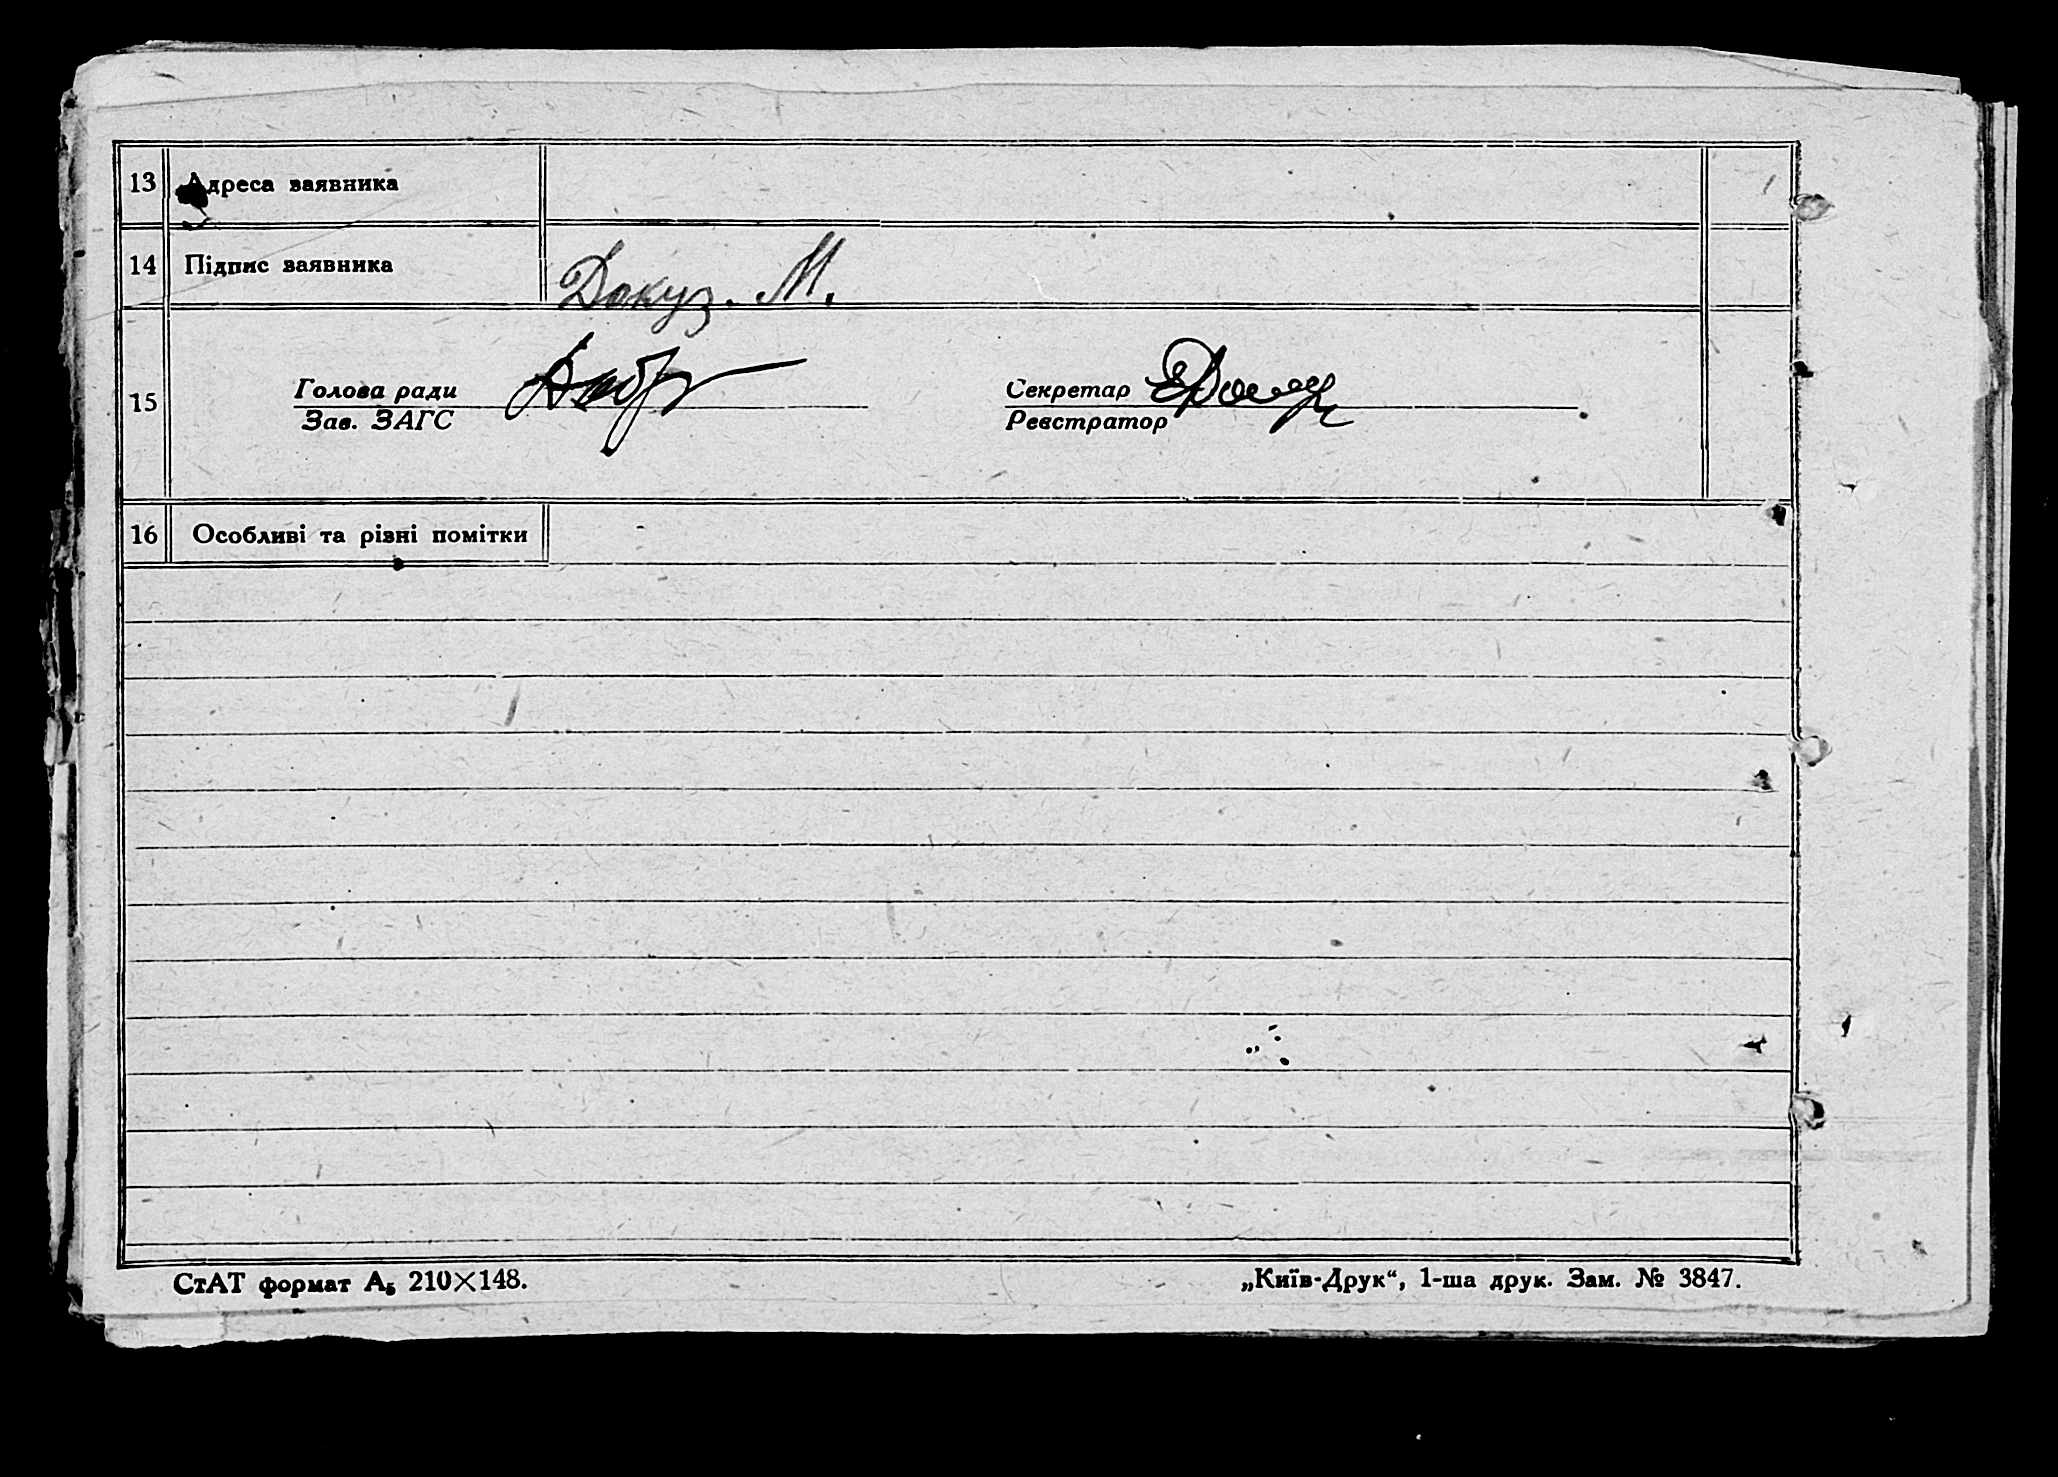 13 Адреса заявника
14 Підпис заявника Докуз. М.
15 Голова ради Секретар
Зав. ЗАГС Реєстратор
16 Особливі та різні помітки
СтАТ формат А5 210×148. „Київ-Друк“, 1-ша друк. Зам. № 3847.